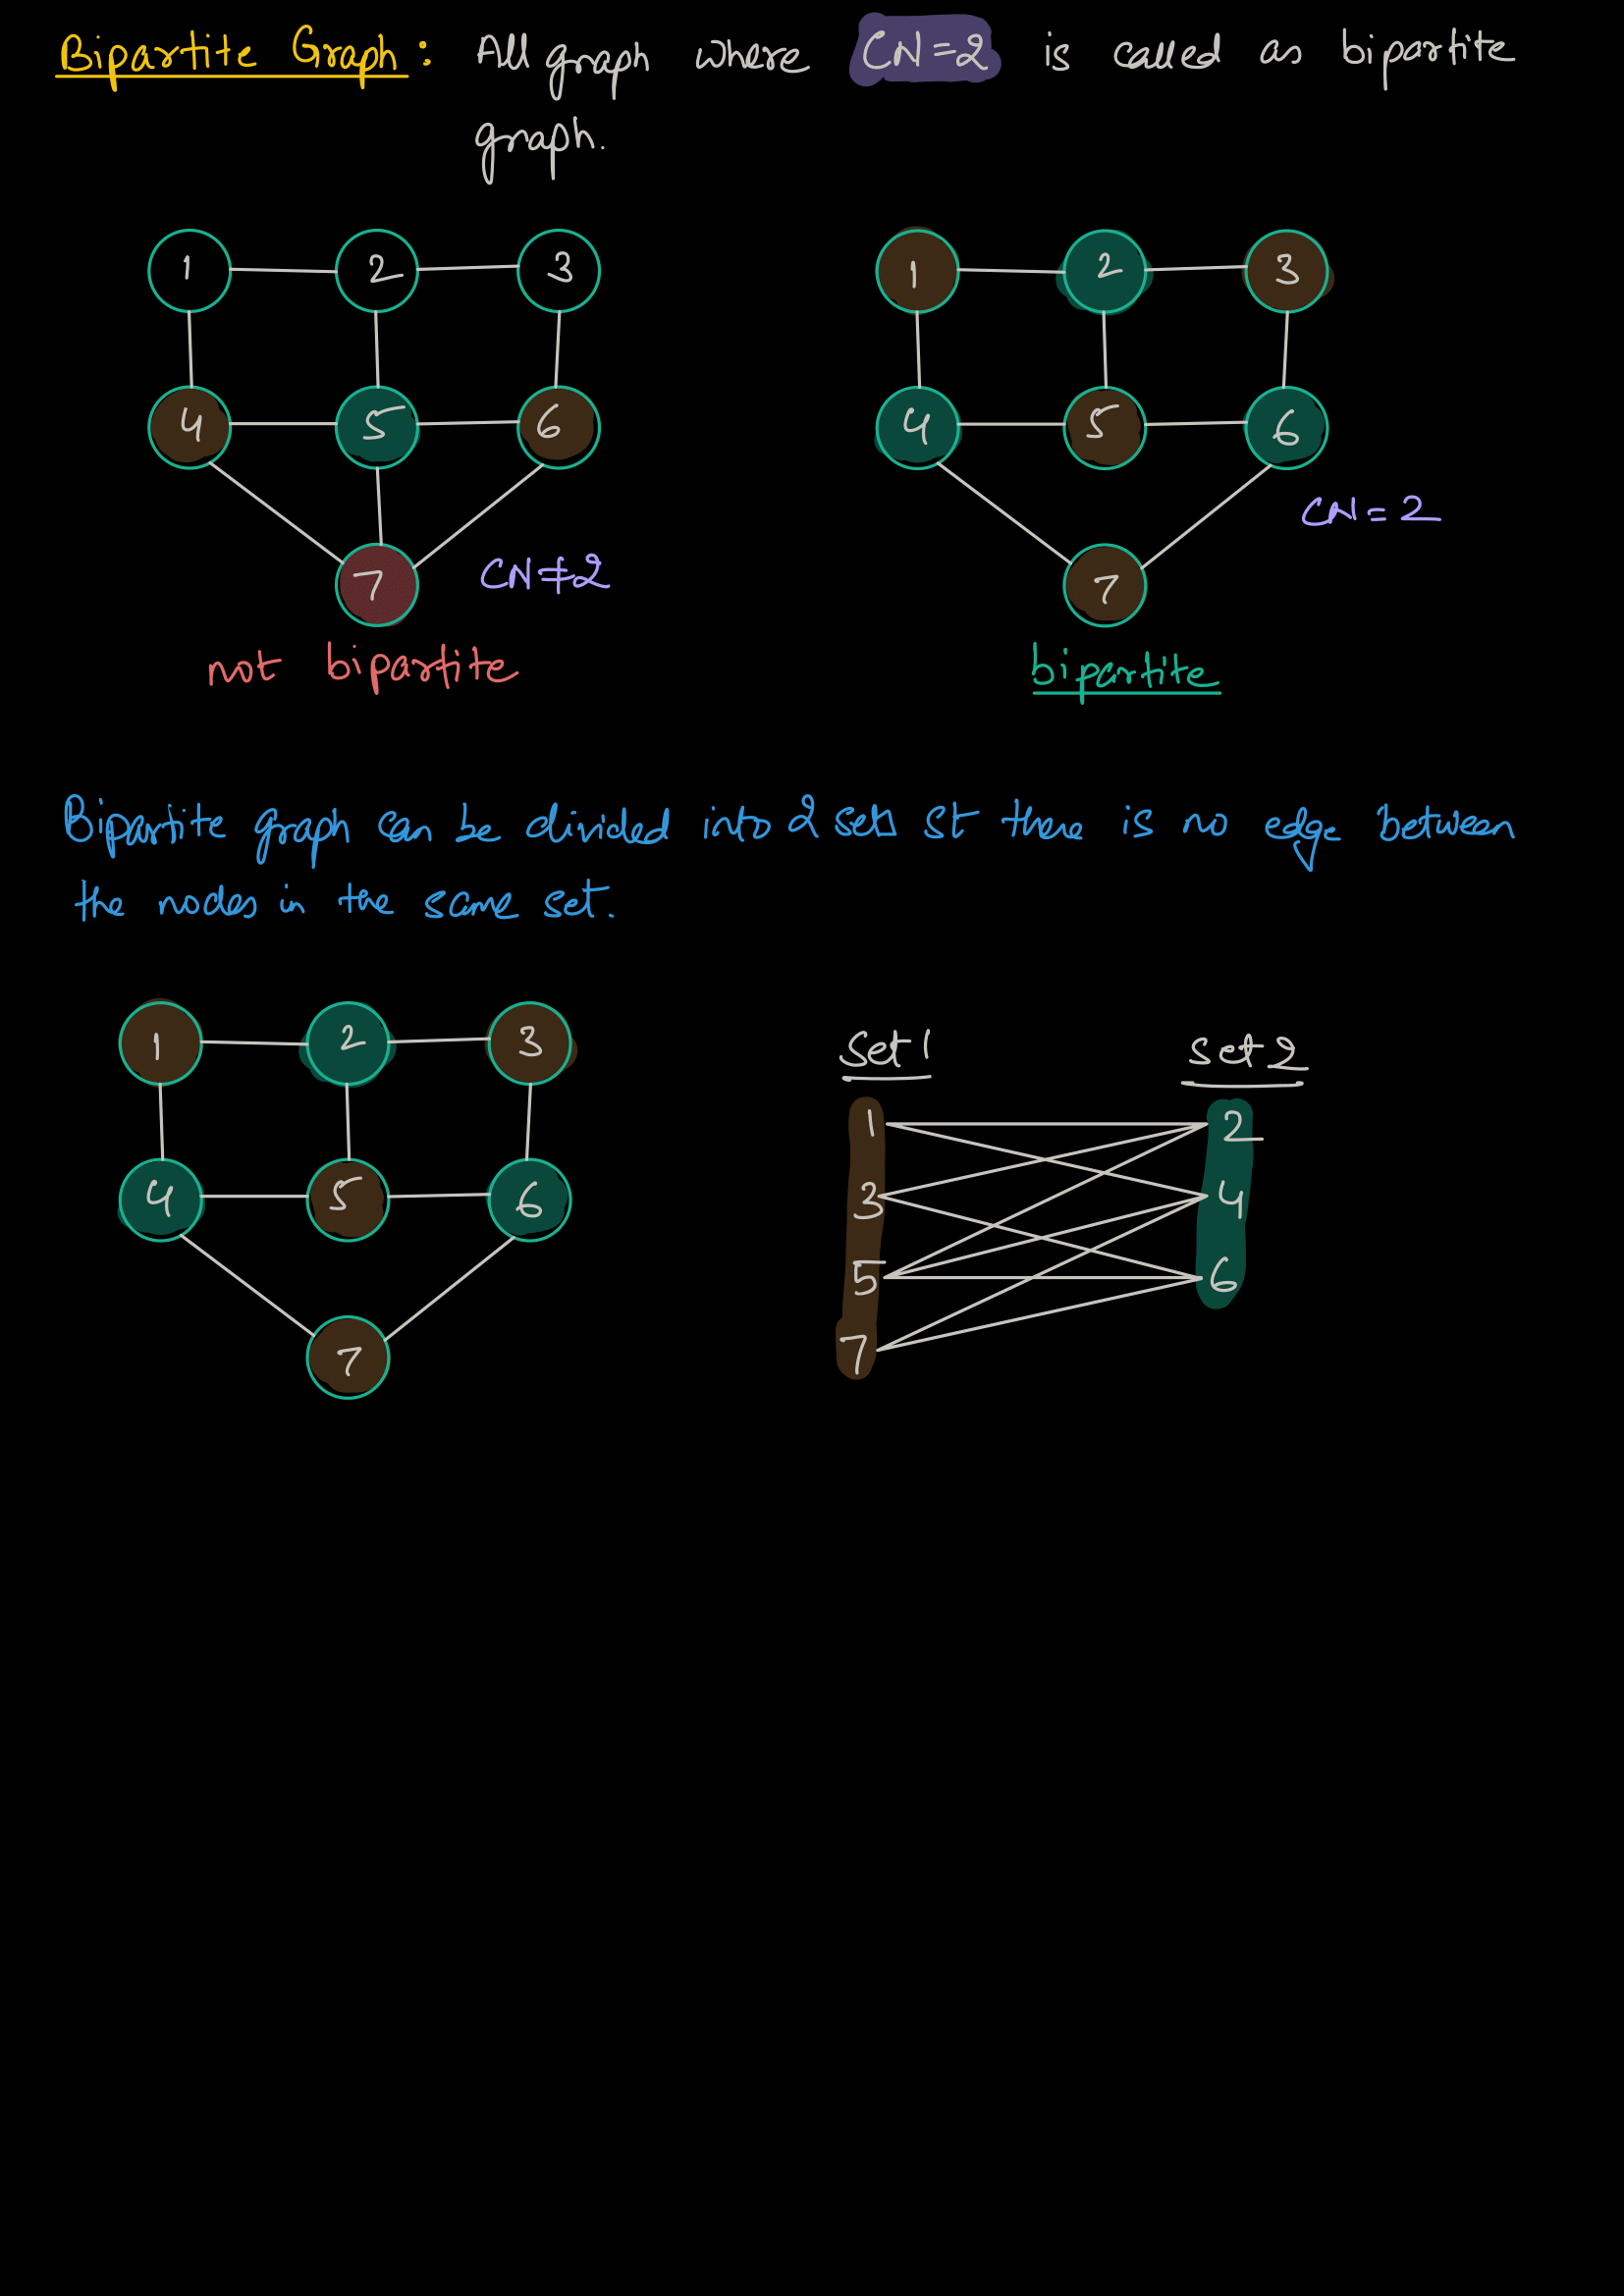 Bipartite Graph : All graph where CN=2 is called as bipartite
graph.
1 2 3
4 5 6
7
CN≠2
not bipartite
1 2 3
4 5 6
CN=2
7
bipartite
Bipartite graph can be divided into 2 sets st there is no edge between
the nodes in the same set.
1 2 3
4 5 6
7
Set 1 set 2
1 2
3 4
5 6
7